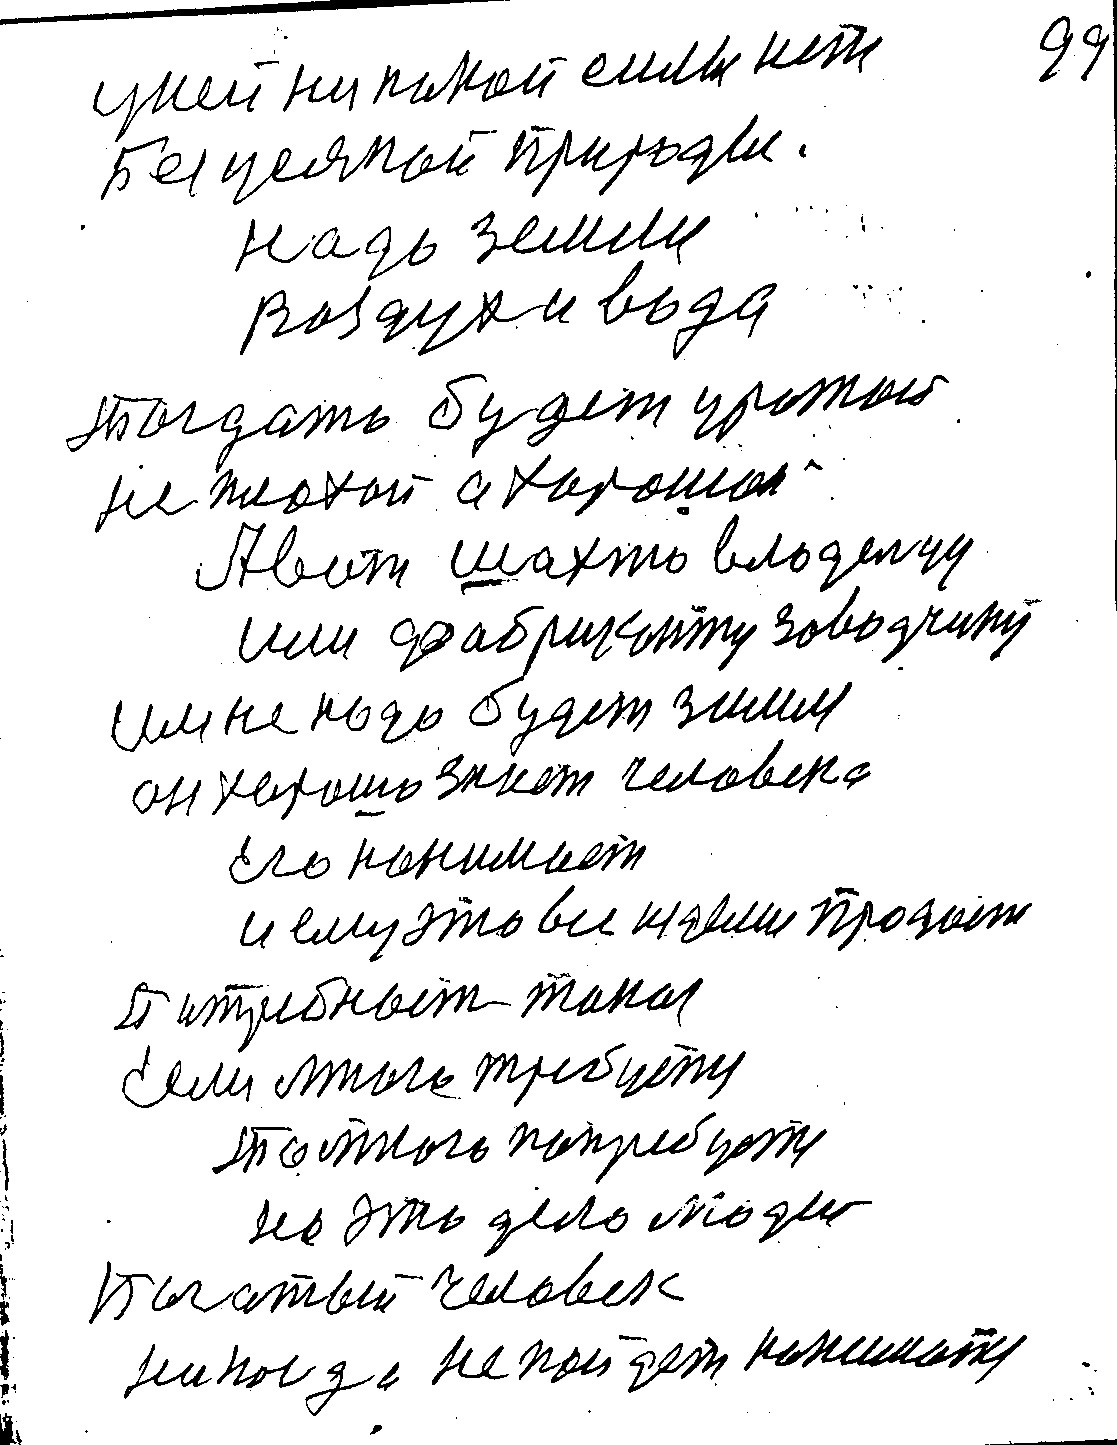 99
у ней никакой силы нет
Без усякой природы.
надо земли
воздух и вода
Тогдать будет урожай
не плохой а хорошой
А вот шахто владелцу
или фабриканту заводчику
им не надо будет зимы
он хорошо знает человека
Его нанимает
и ему это все продает
Потребност такая
Если много требуту
То много потребуту
на это дело людей
Богатый человек
никогда не пойдет нанимату